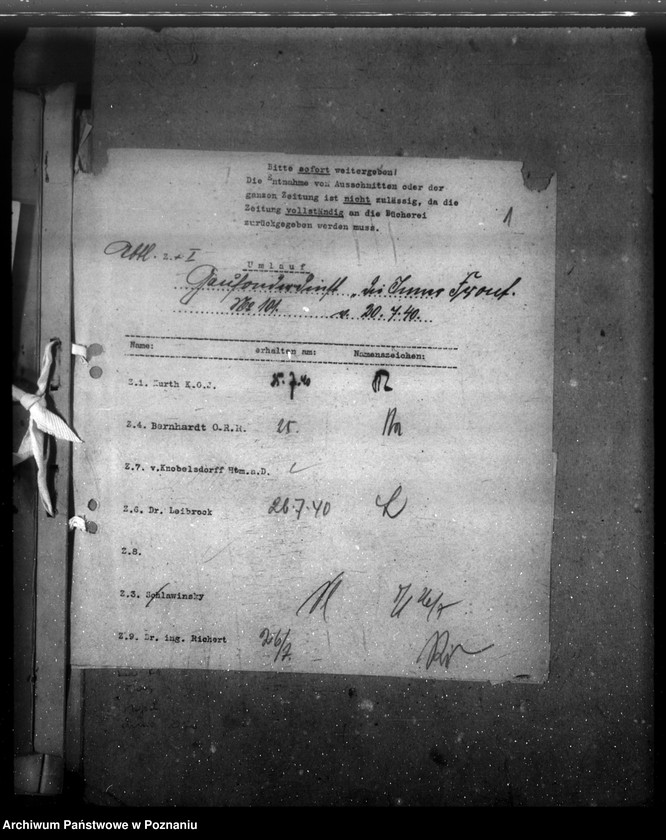 Bitte sofort weitergeben!
Die Entnahme von Ausschnitten oder der
ganzen Zeitung ist nicht zulässig, da die
Zeitung vollständig an die Bücherei
zurückgegeben werden muss.
1
Abtl. Z. + I
Umlauf
"die Innere Front.
No 101. v. 20.7.40.
Name: erhalten am: Namenszeichen:
Z.1. Kurth K.O.J. 25.7.40
Z.4. Bernhardt O.R.R. 25.
Z.7. v.Knobelsdorff Hptm.a.D.
Z.6. Dr. Leibrock 26.7.40 L
Z.8.
Z.3. Schlawinsky 26/7
Z.9. Dr. ing. Richert 26/7. Ri
Archiwum Państwowe w Poznaniu